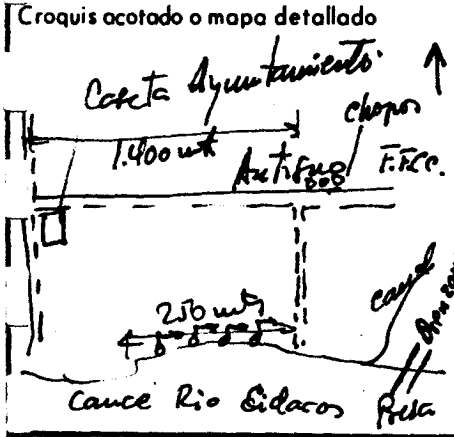 Croquis acotado o mapa detallado
Caseta Ayuntamiento
chopos
1.400 mts
Antiguo F.F.C.C.
250 mts
canal
Cauce Rio Cidacos
Presa